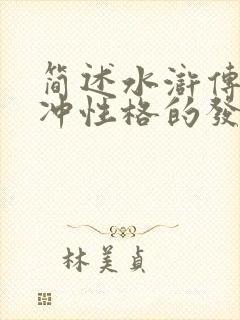 简述水浒傳
冲性格的發
林美貞